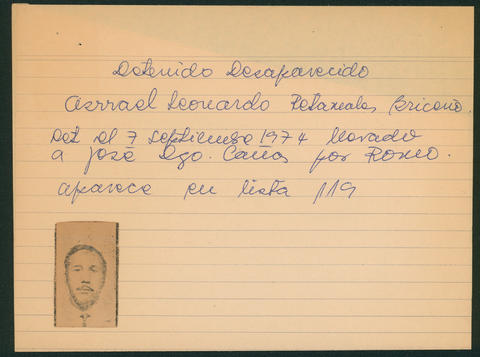 Detenido Desaparecido
Asrrael Leonardo Retamales Briceño.
Det el 7 septiembre 1974 llevado
a José Dgo. Cañas por Romo.
aparece en lista 119